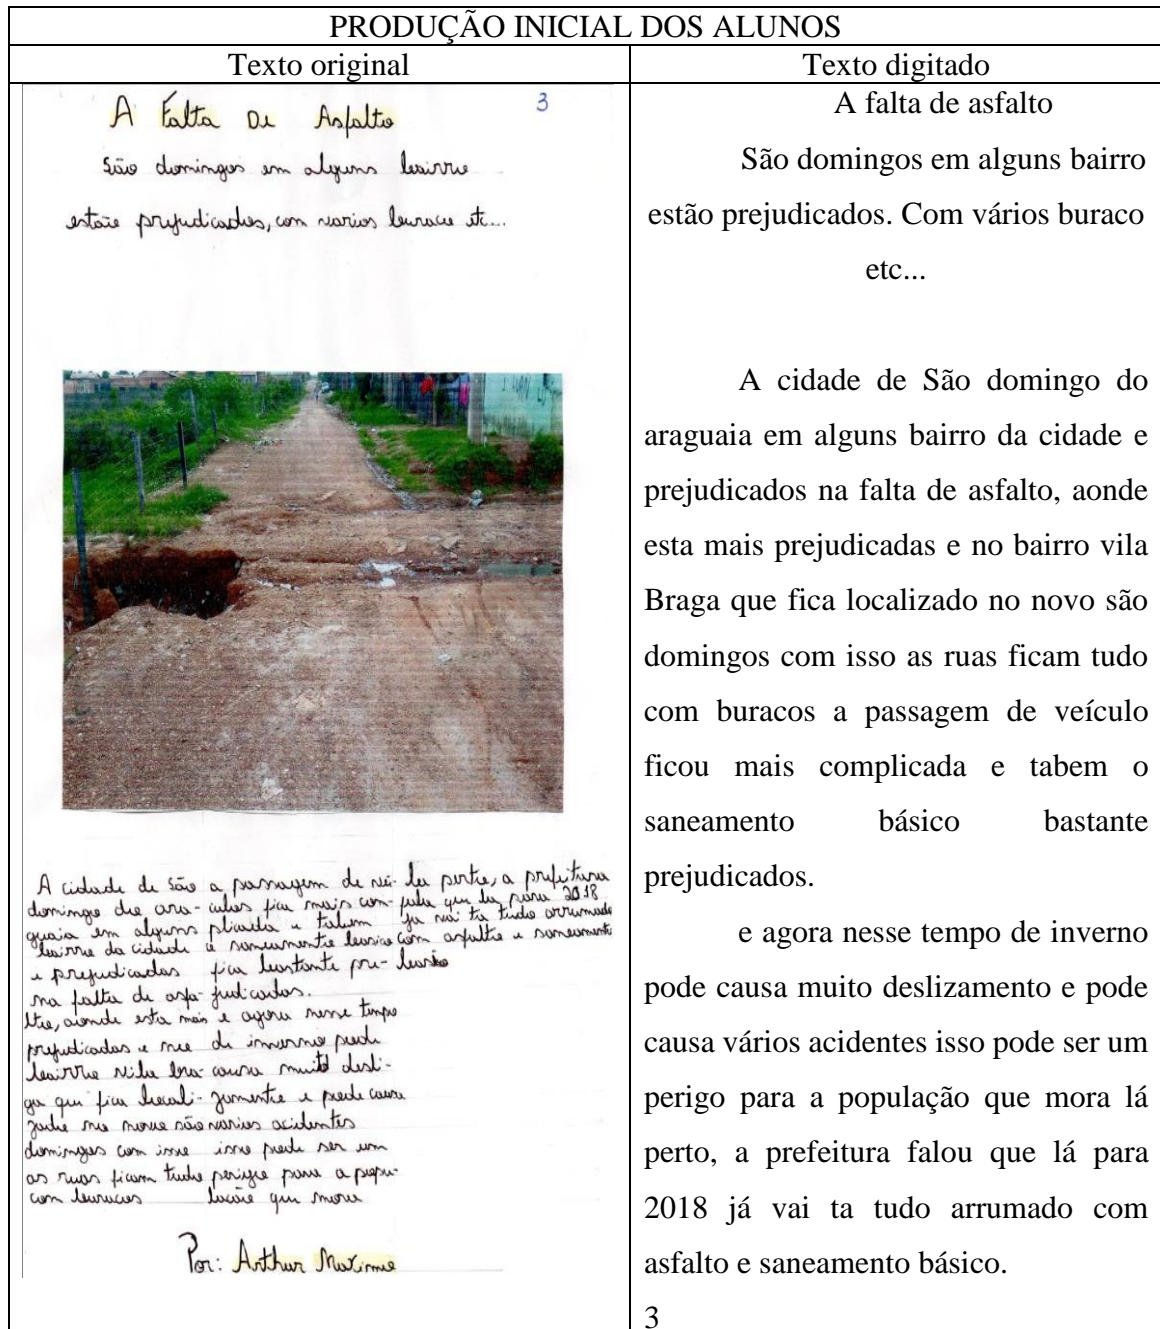 PRODUÇÃO INICIAL DOS ALUNOS
Texto original
Texto digitado
A Falta De Asfalto
3
São domingos em alguns bairro
estão prejudicados, com varios buraco etc...
A cidade de São
domingo do ara-
guaia em alguns
bairro da cidade
e prejudicados
na falta de asfa-
lto, aonde esta mais
prejudicadas e no
bairro vila bra-
ga que fica locali-
zado no novo são
domingos com isso
as ruas ficam tudo
com buracos
a passagem de veí-
culos fica mais com-
plicada e tabem
o saneamento basico
fica bastante pre-
judicados.
e agora nesse tempo
de inverno pode
causa muito desli-
zamento e pode causa
varios acidentes
isso pode ser um
perigo para a popu-
lacão que mora
la perto, a prefeitura
falo que la para 2018
ja vai ta tudo arrumado
com asfalto e saneamento
basico
Por: Arthur Maximo
A falta de asfalto
São domingos em alguns bairro
estão prejudicados. Com vários buraco
etc...
A cidade de São domingo do
araguaia em alguns bairro da cidade e
prejudicados na falta de asfalto, aonde
esta mais prejudicadas e no bairro vila
Braga que fica localizado no novo são
domingos com isso as ruas ficam tudo
com buracos a passagem de veículo
ficou mais complicada e tabem o
saneamento básico bastante
prejudicados.
e agora nesse tempo de inverno
pode causa muito deslizamento e pode
causa vários acidentes isso pode ser um
perigo para a população que mora lá
perto, a prefeitura falou que lá para
2018 já vai ta tudo arrumado com
asfalto e saneamento básico.
3